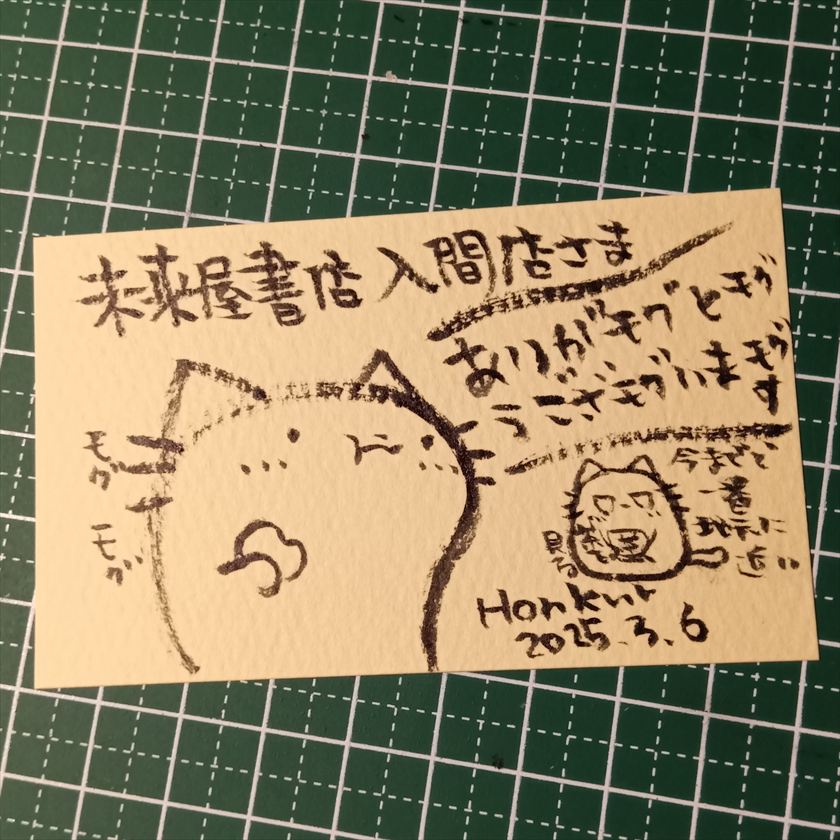 未来屋書店 入間店さま
ありがモグとモグ
うござモグいまモグす
モグ
モグ
今までで
一番
地元に
近い
見る
Honkur
2025.3.6